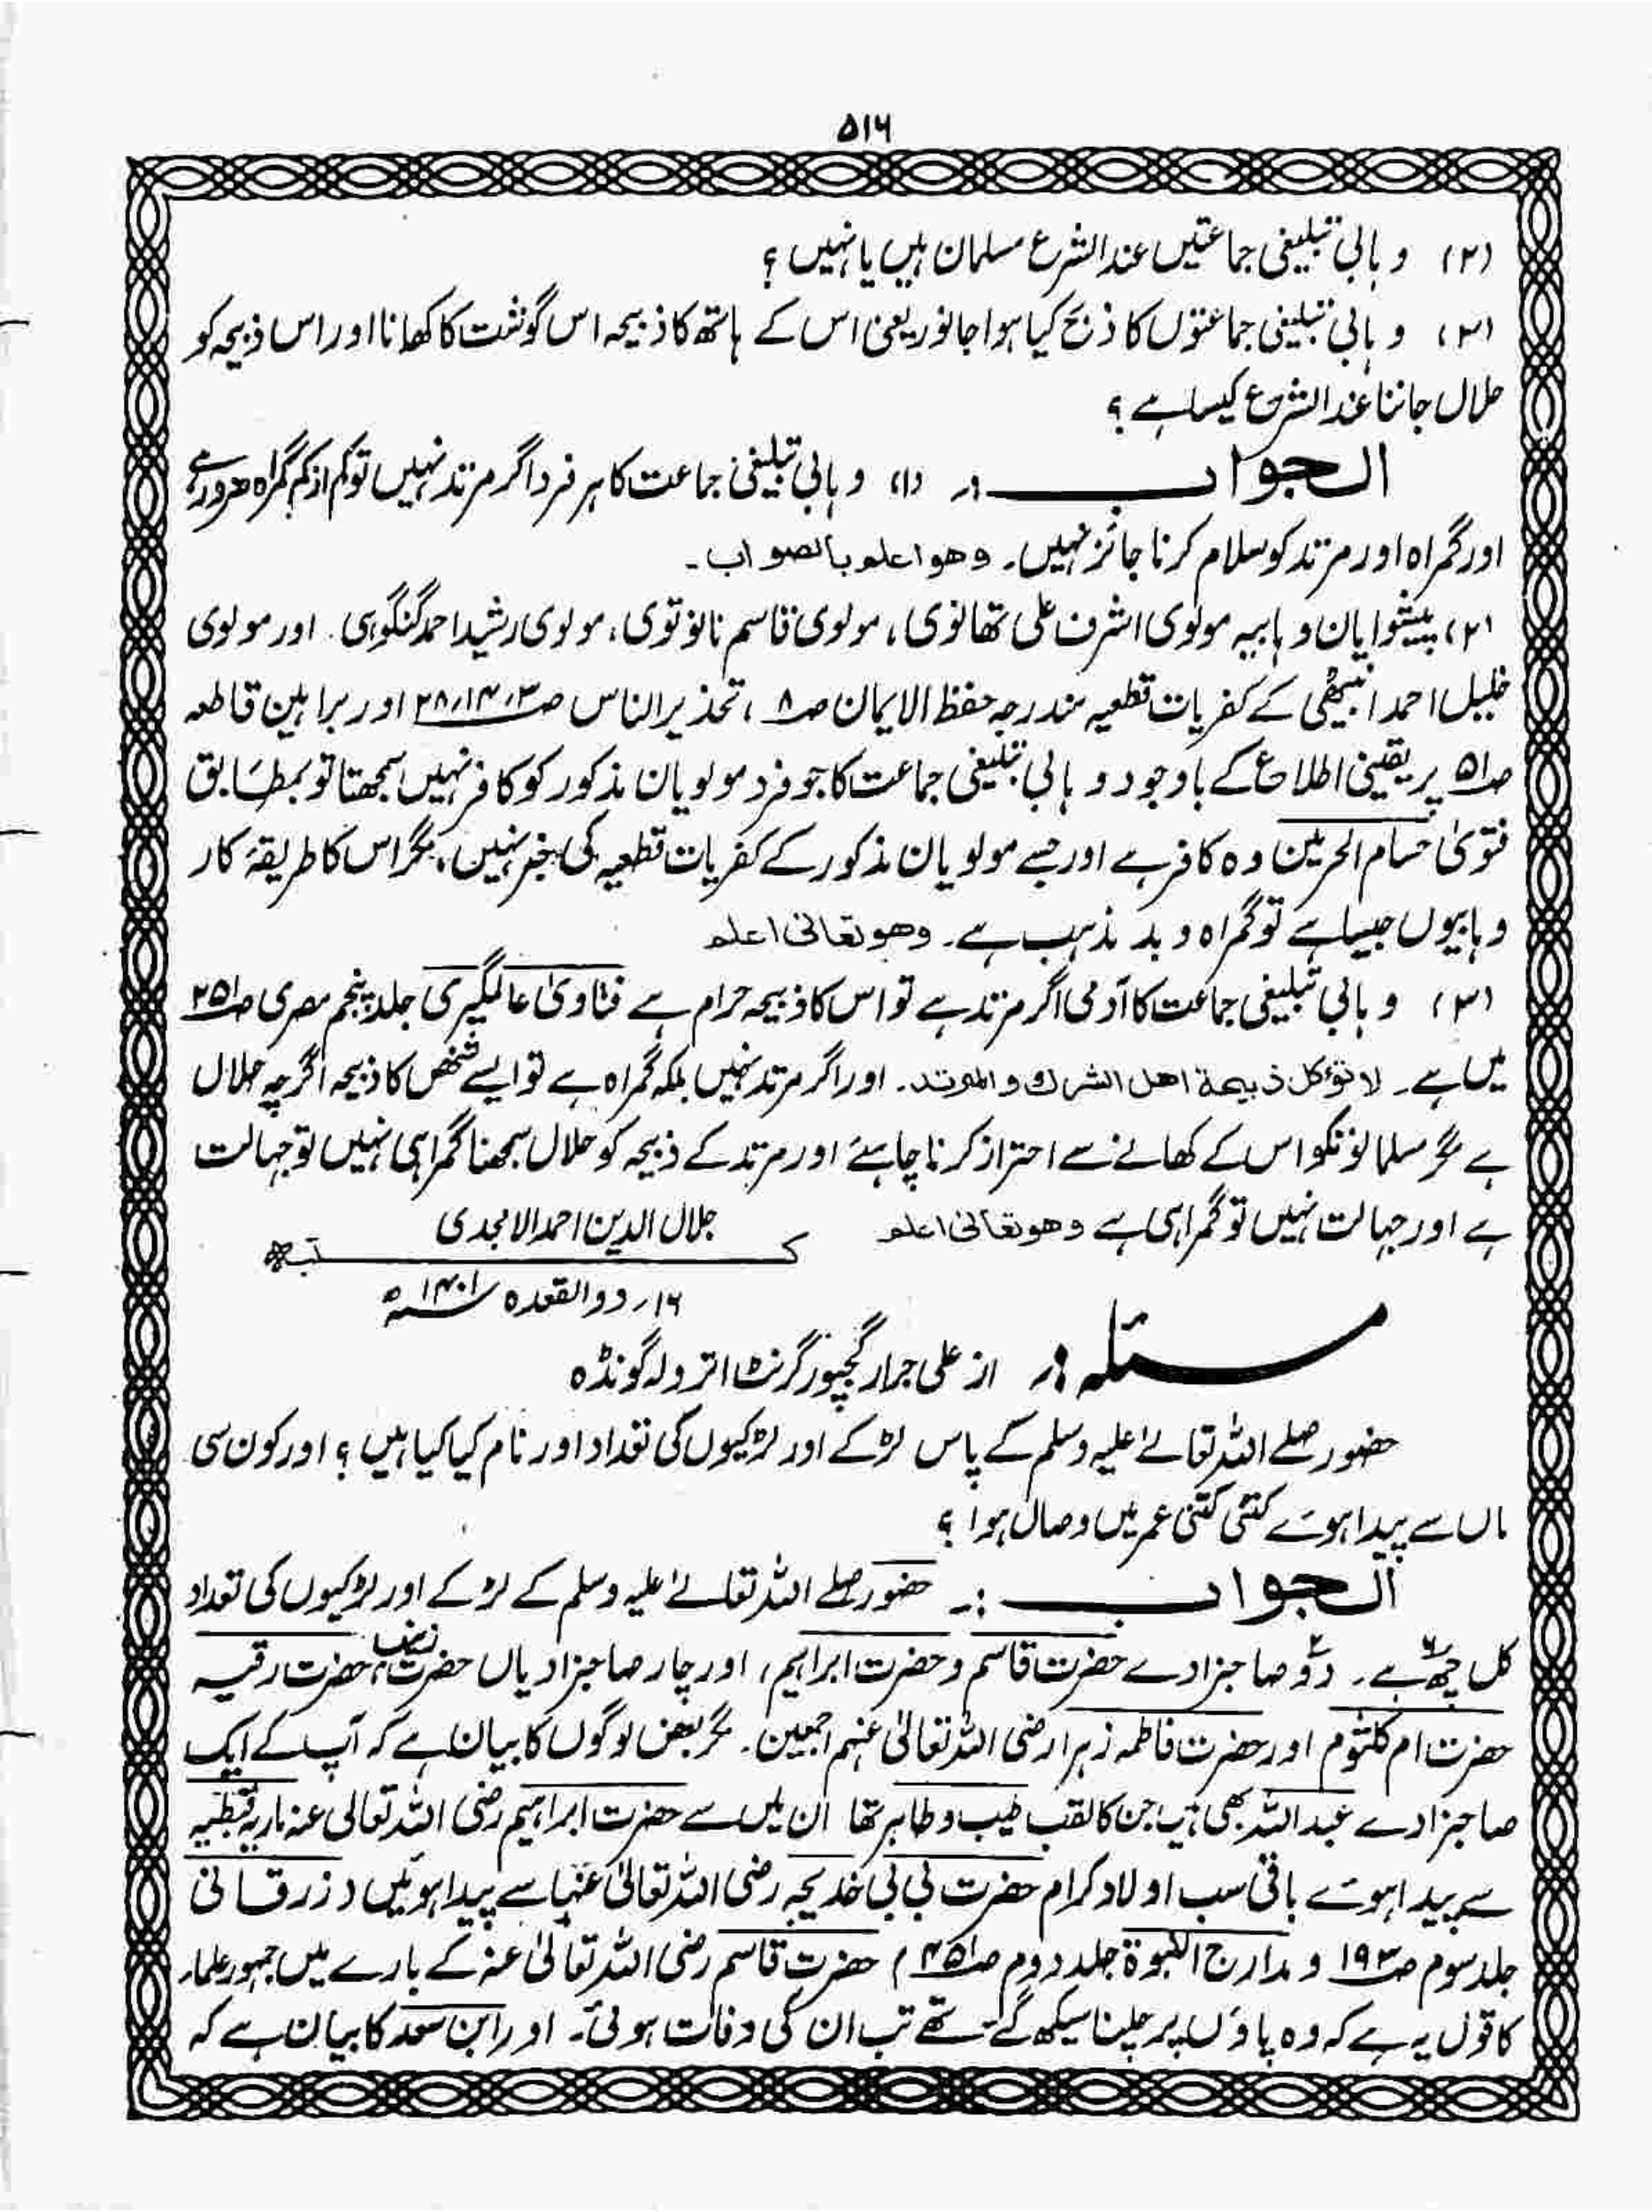 ۵۱۶
(۲) وہابی تبلیغی جماعتیں عند الشرع مسلمان ہیں یا نہیں ؟
(۳) وہابی تبلیغی جماعتوں کا ذبح کیا ہوا جانور یعنی اس کے ہاتھ کا ذبیحہ اس گوشت کا کھانا اور اس ذبیحہ کو
حلال جاننا عند الشرع کیسا ہے ؟
الجواب :۔ (۱) وہابی تبلیغی جماعت کا ہر فرد اگر مرتد نہیں تو کم از کم گمراہ ضرور ہے
اور گمراہ اور مرتد کو سلام کرنا جائز نہیں۔ وھو اعلم بالصواب۔
(۲) پیشوایان وہابیہ مولوی اشرف علی تھانوی، مولوی قاسم نانوتوی، مولوی رشید احمد گنگوہی۔ اور مولوی
خلیل احمد انبیٹھی کے کفریات قطعیہ مندرجہ حفظ الایمان ص۸ ، تحذیر الناس ص۳، ۱۴، ۲۸ اور براہین قاطعہ
ص۵۱ پر یقینی اطلاع کے باوجود وہابی تبلیغی جماعت کا جو فرد مولویان مذکور کو کافر نہیں سمجھتا تو بمطابق
فتویٰ حسام الحرمین وہ کافر ہے اور جسے مولویان مذکور کے کفریات قطعیہ کی خبر نہیں، مگر اس کا طریقۂ کار
وہابیوں جیسا ہے تو گمراہ و بد مذہب ہے۔ وھو تعالیٰ اعلم
(۳) وہابی تبلیغی جماعت کا آدمی اگر مرتد ہے تو اس کا ذبیحہ حرام ہے فتاویٰ عالمگیری جلد پنجم مصری ص۲۵۱
میں ہے۔ لا تؤکل ذبیحۃ اھل الشرک والمرتد۔ اور اگر مرتد نہیں بلکہ گمراہ ہے تو ایسے شخص کا ذبیحہ اگرچہ حلال
ہے مگر مسلمانونکو اس کے کھانے سے احتراز کرنا چاہئے اور مرتد کے ذبیحہ کو حلال سمجھنا گمراہی نہیں تو جہالت
ہے اور جہالت نہیں تو گمراہی ہے وھو تعالیٰ اعلم
جلال الدین احمد الامجدی
کتبہ
۱۶؍ ذو القعدہ ۱۴۰۱ھ
مسئلہ :۔ از علی جرار گجپور گرنٹ اترولہ گونڈہ
حضور صلے اللہ تعالےٰ علیہ وسلم کے پاس لڑکے اور لڑکیوں کی تعداد اور نام کیا کیا ہیں ؟ اور کون سی
ماں سے پیدا ہوئے کتنی کتنی عمر میں وصال ہوا ؟
الجواب :۔ حضور صلے اللہ تعالےٰ علیہ وسلم کے لڑکے اور لڑکیوں کی تعداد
کل چھ۶ ہے۔ دو۲ صاحبزادے حضرت قاسم و حضرت ابراہیم، اور چار صاحبزادیاں حضرت زینب، حضرت رقیہ
حضرت ام کلثوم اور حضرت فاطمہ زہرا رضی اللہ تعالیٰ عنہم اجمعین۔ مگر بعض لوگوں کا بیان ہے کہ آپ کے ایک
صاحبزادے عبد اللہ بھی ہیں جن کا لقب طیب و طاہر تھا ان میں سے حضرت ابراہیم رضی اللہ تعالی عنہ ماریہ قبطیہ
سے پیدا ہوئے باقی سب اولاد کرام حضرت بی بی خدیجہ رضی اللہ تعالیٰ عنہا سے پیدا ہوئیں (زرقانی
جلد سوم ص۱۹۳ و مدارج النبوۃ جلد دوم ص۴۵۱) حضرت قاسم رضی اللہ تعالیٰ عنہ کے بارے میں جمہور علماء
کا قول یہ ہے کہ وہ پاؤں پر چلنا سیکھ گئے تھے تب ان کی وفات ہوئی۔ اور ابن سعد کا بیان ہے کہ